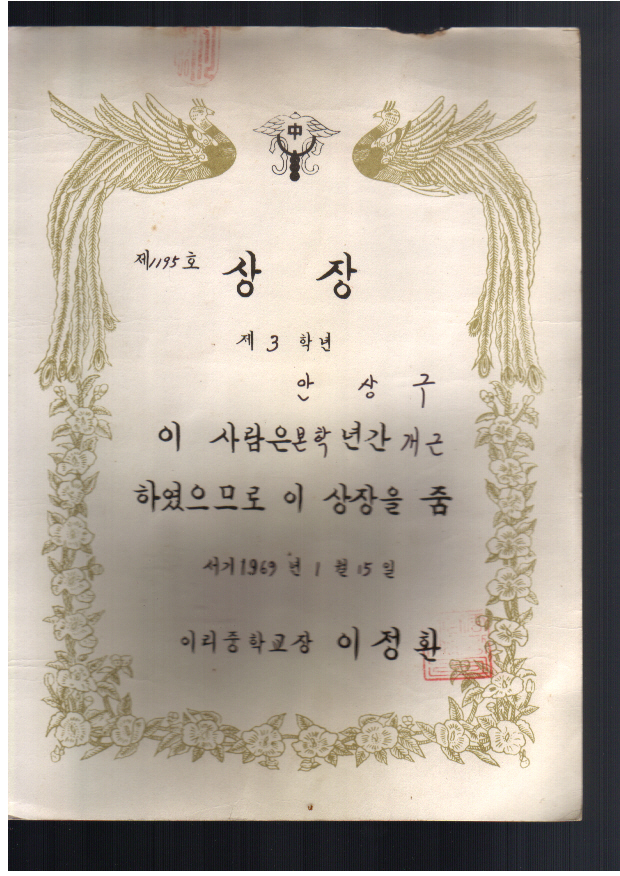 中
제1195호 상 장
제 3 학년
안 상 구
이 사람은 본학년간 개근
하였으므로 이 상장을 줌
서기 1969 년 1 월 15 일
이리중학교장 이정환